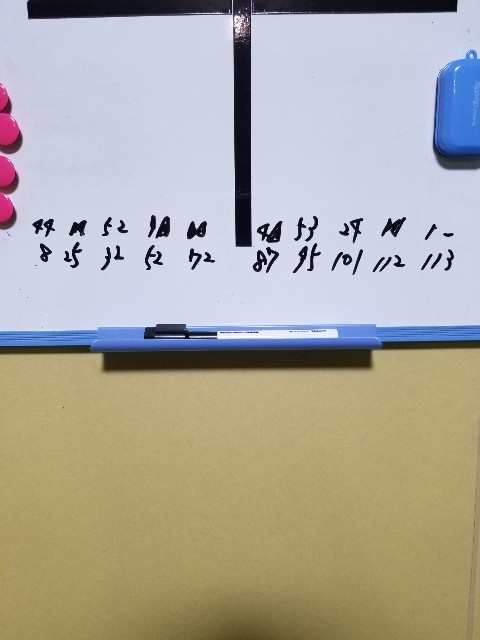 44 ⧓ 52 9◢ ⧓ 4◢ 53 24 ⧓ 1-
8 25 32 52 72 87 95 101 112 113